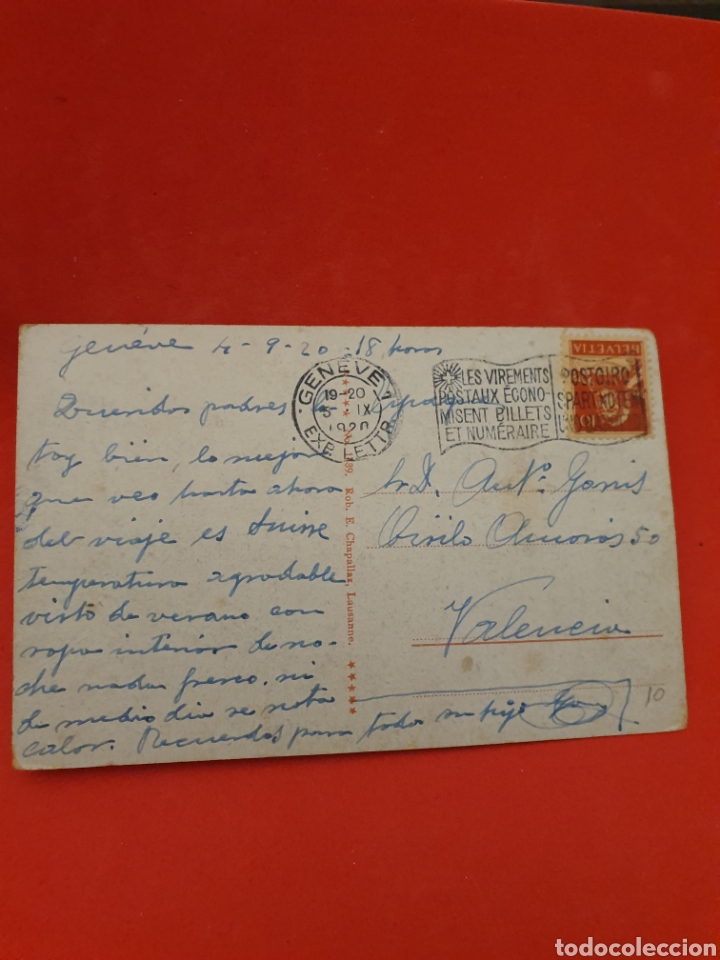 Genéve 4-9-20 18 horas
Queridos padres
toy bien, lo mejor
que veo hasta ahora
del viaje es Suisse
temperatura agradable
visto de verano con
ropa interior de no-
che nada fresco, ni
de medio dia se nota
calor. Recuerdos para todo su hijo
GENÈVE 1
19-20
IX
1920
EXP. LETTR.
LES VIREMENTS
POSTAUX ÉCONO-
MISENT BILLETS
ET NUMÉRAIRE
POSTGIRO
SPART NOTEN
HELVETIA
10
Rob. E. Chapallaz, Lausanne.
Sr. D. Anto. Genis
Cirilo Amoros 50
Valencia
10
todocoleccion